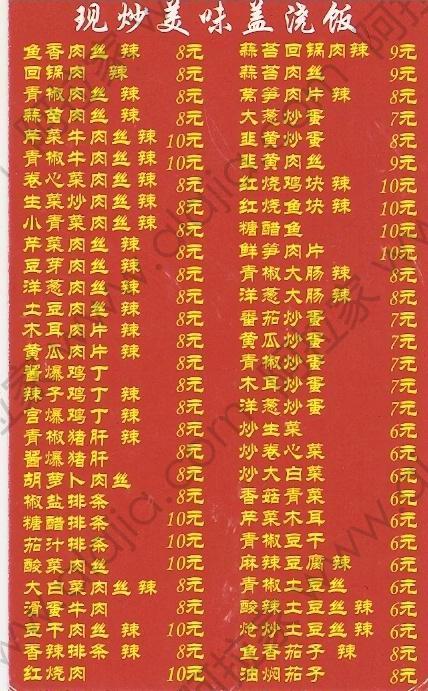 现炒美味盖浇饭
鱼香肉丝 辣 8元
回锅肉 辣 8元
青椒肉丝 辣 8元
蒜苗肉丝 辣 8元
芹菜牛肉丝 辣 10元
青椒牛肉丝 辣 10元
卷心菜肉丝 辣 8元
生菜炒肉丝 辣 8元
小青菜肉丝 辣 8元
芹菜肉丝 辣 8元
豆芽肉丝 辣 8元
洋葱肉丝 辣 8元
土豆肉丝 辣 8元
木耳肉片 辣 8元
黄瓜肉片 辣 8元
酱爆鸡丁 8元
辣子鸡丁 辣 8元
宫爆鸡丁 辣 8元
青椒猪肝 辣 8元
酱爆猪肝 8元
胡萝卜肉丝 8元
椒盐排条 8元
糖醋排条 10元
茄汁排条 10元
酸菜 10元
大白菜肉丝 辣 8元
滑蛋牛肉 8元
豆干肉丝 辣 10元
香辣排条 辣 8元
红烧肉 10元
蒜苔回锅肉 辣 9元
蒜苔肉丝 9元
莴笋肉片 辣 8元
大葱炒蛋 7元
韭黄炒蛋 8元
韭黄肉丝 9元
红烧鸡块 辣 10元
红烧鱼块 辣 10元
糖醋鱼 10元
鲜笋肉片 10元
青椒大肠 辣 8元
洋葱大肠 辣 8元
番茄炒蛋 7元
黄瓜炒蛋 7元
青椒炒蛋 7元
木耳炒蛋 7元
洋葱炒蛋 7元
炒生菜 6元
炒卷心菜 6元
炒大白菜 6元
香菇青菜 6元
芹菜木耳 6元
青椒豆干 6元
麻辣豆腐 辣 6元
青椒土豆丝 6元
酸辣土豆丝 辣 6元
炝炒土豆丝 辣 6元
鱼香茄子 辣 8元
油焖茄子 8元